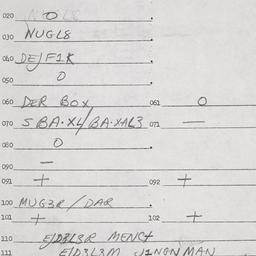 020 O
030 NUGL8
040 DEJF1K
050 O
060 DER BOX 061 O
070 5 BA·XL/BA·XAL3 071 —
080 O
090 —
091 + 092 +
100 MUG3R/DAR
101 + 102 +
110 E/D3L3R MENCT
111 E/D3L3M J1NGNMAN